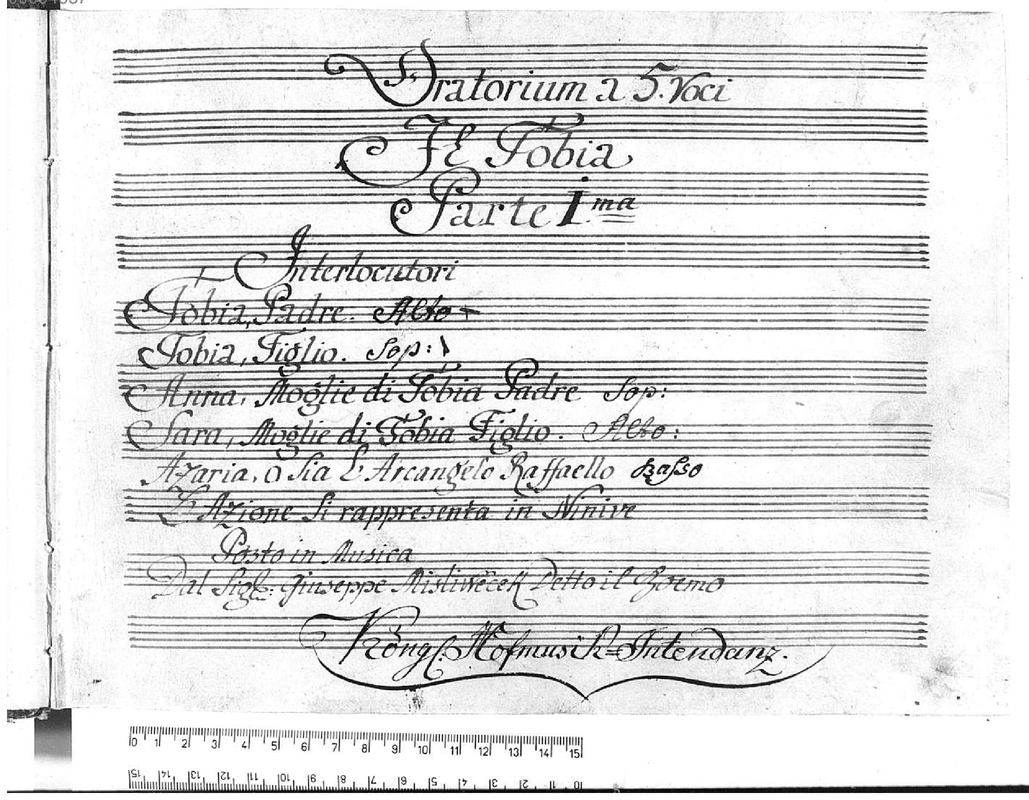 Oratorium a 5. Voci
Il Tobia
Parte Ima
Interlocutori
Tobia, Padre. Alto
Tobia, Figlio. Sop:
Anna, Moglie di Tobia Padre Sop:
Sara, Moglie di Tobia Figlio. Alto:
Azaria, o sia L'Arcangelo Raffaello Basso
L'Azione si rappresenta in Ninive
Posto in Musica
Dal Sigr: Giuseppe Misliwecek Detto il Boemo
Köngl. Hofmusik=Intendanz.
0 1 2 3 4 5 6 7 8 9 10 11 12 13 14 15
15 14 13 12 11 10 9 8 7 6 5 4 3 2 1 0